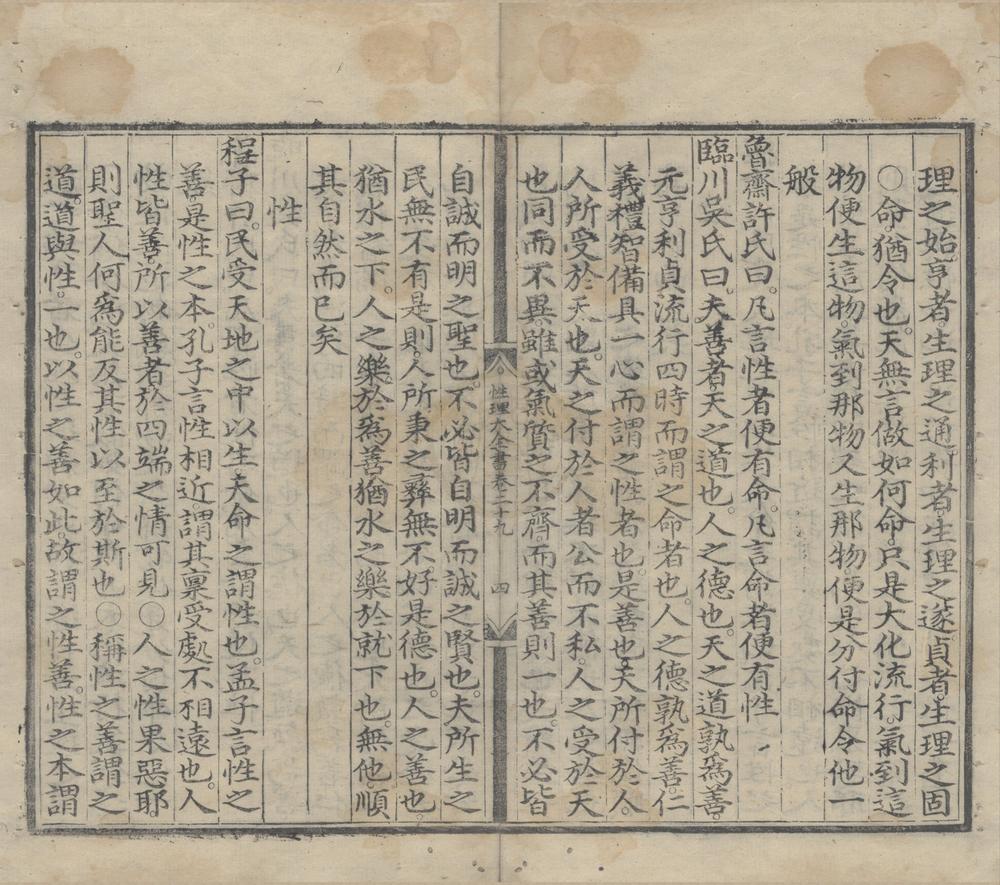 理之始。亨者。生理之通。利者。生理之遂。貞者。生理之固
○命。猶令也。天無言做。如何命。只是大化流行。氣到這
物便生這物。氣到那物又生那物。便是分付命令他一
般
魯齋許氏曰。凡言性者便有命。凡言命者便有性
臨川吳氏曰。夫。善者。天之道也。人之德也。天之道孰為善。
元亨利貞流行四時而謂之命者也。人之德孰為善。仁
義禮智備具一心而謂之性者也。是善也。天所付於人。
人所受於天也。天之付於人者公而不私。人之受於天
也同而不異。雖或氣質之不齊。而其善則一也。不必皆
性理大全書卷二十九 四
自誠而明之聖也。不必皆自明而誠之賢也。夫所生之
民無不有是則。人所秉之彝無不好是德也。人之善也
猶水之下。人之樂於為善猶水之樂於就下也。無他。順
其自然而已矣
性
程子曰。民受天地之中以生。夫命之謂性也。孟子言性之
善。是性之本。孔子言性相近。謂其稟受處不相遠也。人
性皆善。所以善者於四端之情可見○人之性果惡耶。
則聖人何為能反其性以至於斯也○稱性之善謂之
道。道與性。一也。以性之善如此。故謂之性善。性之本謂